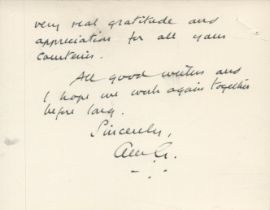 very real gratitude and
appreciation for all your
courtesies.
All good wishes and
I hope we work again together
before long.
Sincerely,